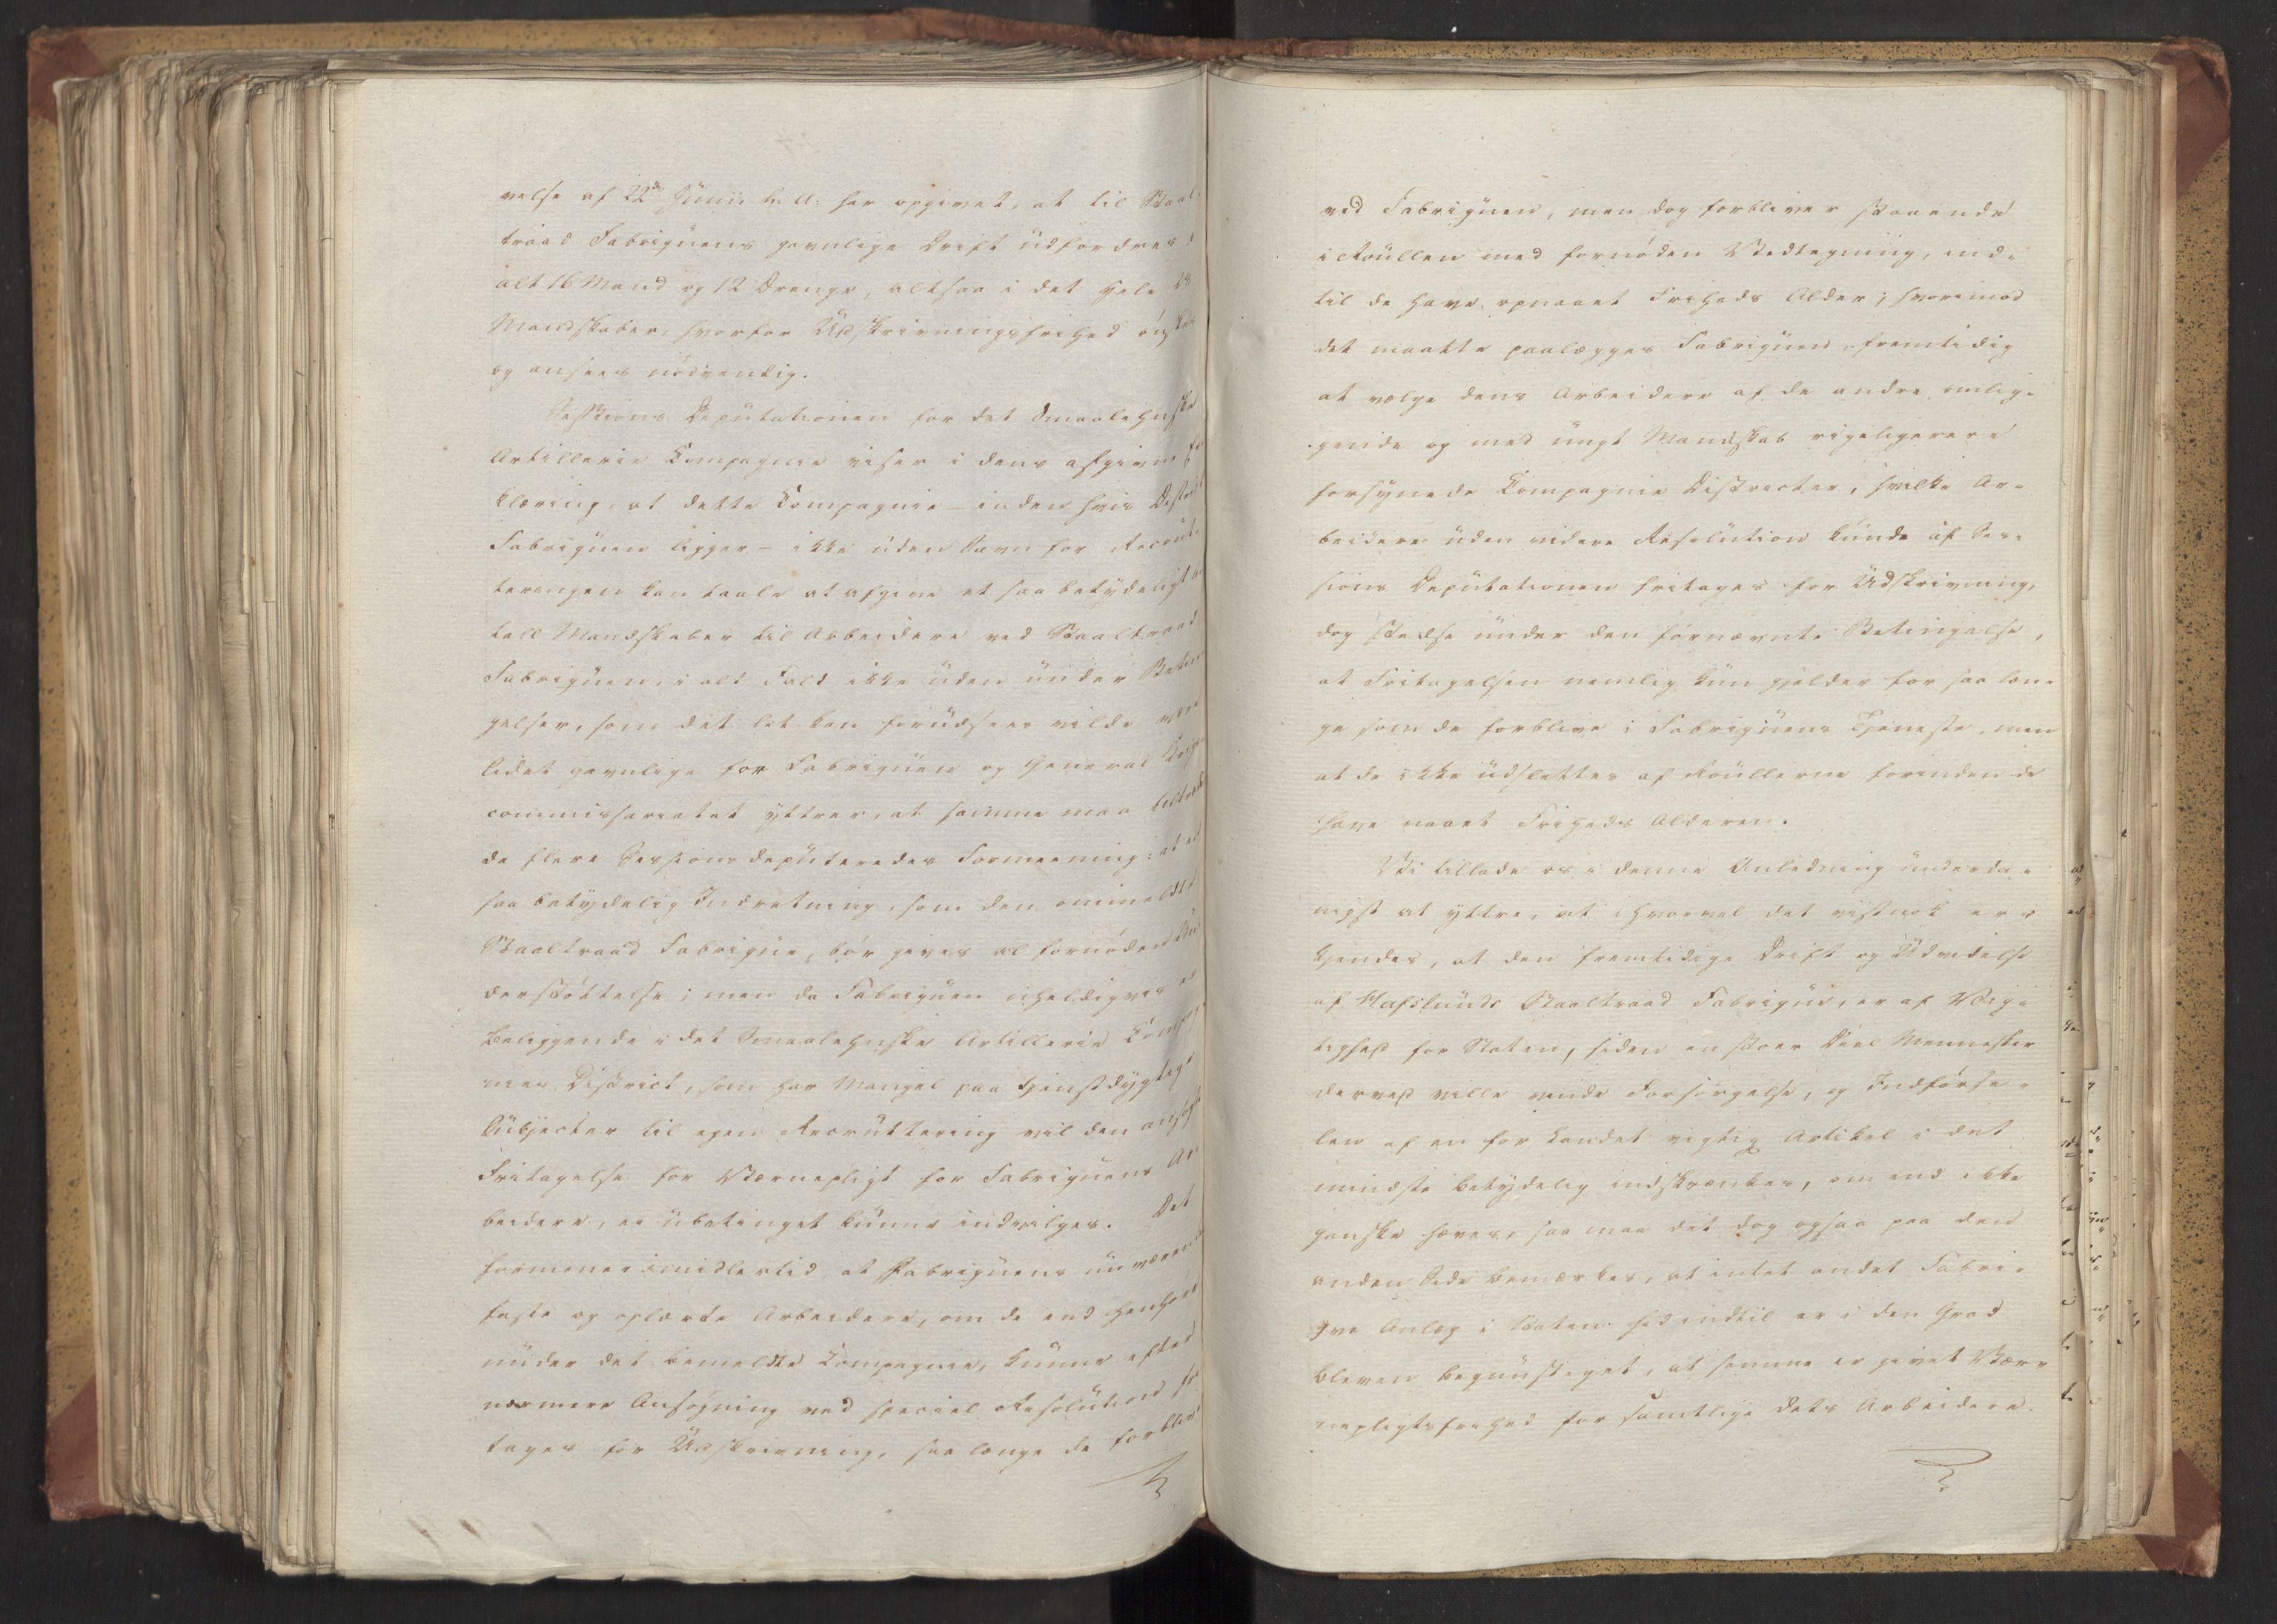 velse af 22de Junii h. A. har opgivet, at til Staal-
traad Fabriquens gavnlige Drift udfordres i
alt 16 Mand og 12 Drenge, altsaa i det hele 28
Mandskaber, hvorfor Udskrivningsfrihed ønskes
og ansees nødvendig.
Sessions Deputationen for det Smaalehnske
Artillerie Compagnie viser i dens afgivne Er-
klæring, at dette Compagnie – inden hvis District
Fabriquen ligger – ikke uden Savn for Recrut-
teringen kan taale at afgive et saa betydeligt An-
tall Mandskaber til Arbeidere ved Staaltraad
Fabriquen, i alt Fald ikke uden under Betin-
gelser, som det let kan forudsees vilde være
lidet gavnlige for Fabriquen og General Krigs-
commissariatet yttrer, at samme maa tiltræde
de flere Sessionsdeputeredes Formeening: at en
saa betydelig Indretning, som den ommeldte
Staaltraad Fabrique, bør gives al fornøden Un-
derstøttelse; men da Fabriquen uheldigvis er
beliggende i det Smaalehnske Artillerie Compag-
nies District, som har Mangel paa tjenstdygtige
Subjecter til egen Recruttering vil den ansøgte
Fritagelse for Værnepligt for Fabriquens Ar-
beidere, ei ubetinget kunne indvilges. Det
formenes imidlertid at Fabriquens nuværende
faste og oplærte Arbeidere, om de end henhøre
under det bemeldte Compagnie, kunne efter
nærmere Ansøgning ved speciel Resolution fri-
tages for Udskrivning, saa længe de forblive
ved Fabriquen, men dog forbliver staaende
i Roullen med fornøden Vedtegning, ind-
til de have opnaaet Friheds Alder; hvorimod
det maatte paalægges Fabriquen, fremtidig
at vælge dens Arbeidere af de andre omlig-
gende og med ungt Mandskab rigeligerere
forsynede Compagnie Districter, hvilke Ar-
beidere uden videre Resolution kunde af Ses-
sions Deputationen fritages for Udskrivning,
dog stedse under den fornævnte Betingelse,
at Fritagelsen nemlig kun gjelder for saa læn-
ge som de forblive i Fabriquens Tjeneste, men
at de ikke udslettes af Roullerne forinden de
have naaet Friheds Alderen.
Vi tillade os i denne Anledning underda-
nigst at yttre, at ihvorvel det vistnok er-
kjendes, at den fremtidige Drift og Udvidelse
af Hafslunds Staaltraad Fabrique, er af Vig-
tighed for Staten, siden en stoer Deel Mennesker
derved ville vinde Forsørgelse, og Indførse-
len af en for Landet vigtig Artikel i det
mindste betydelig indskrænkes, om end ikke
ganske hæves, saa maa det dog ogsaa paa den
anden Side bemærkes, at intet andet Fabri-
que Anlæg i Staten hid indtil er i den Grad
bleven begunstiget, at samme er givet Vær-
nepligtsfrihed for samtlige dets Arbeidere.